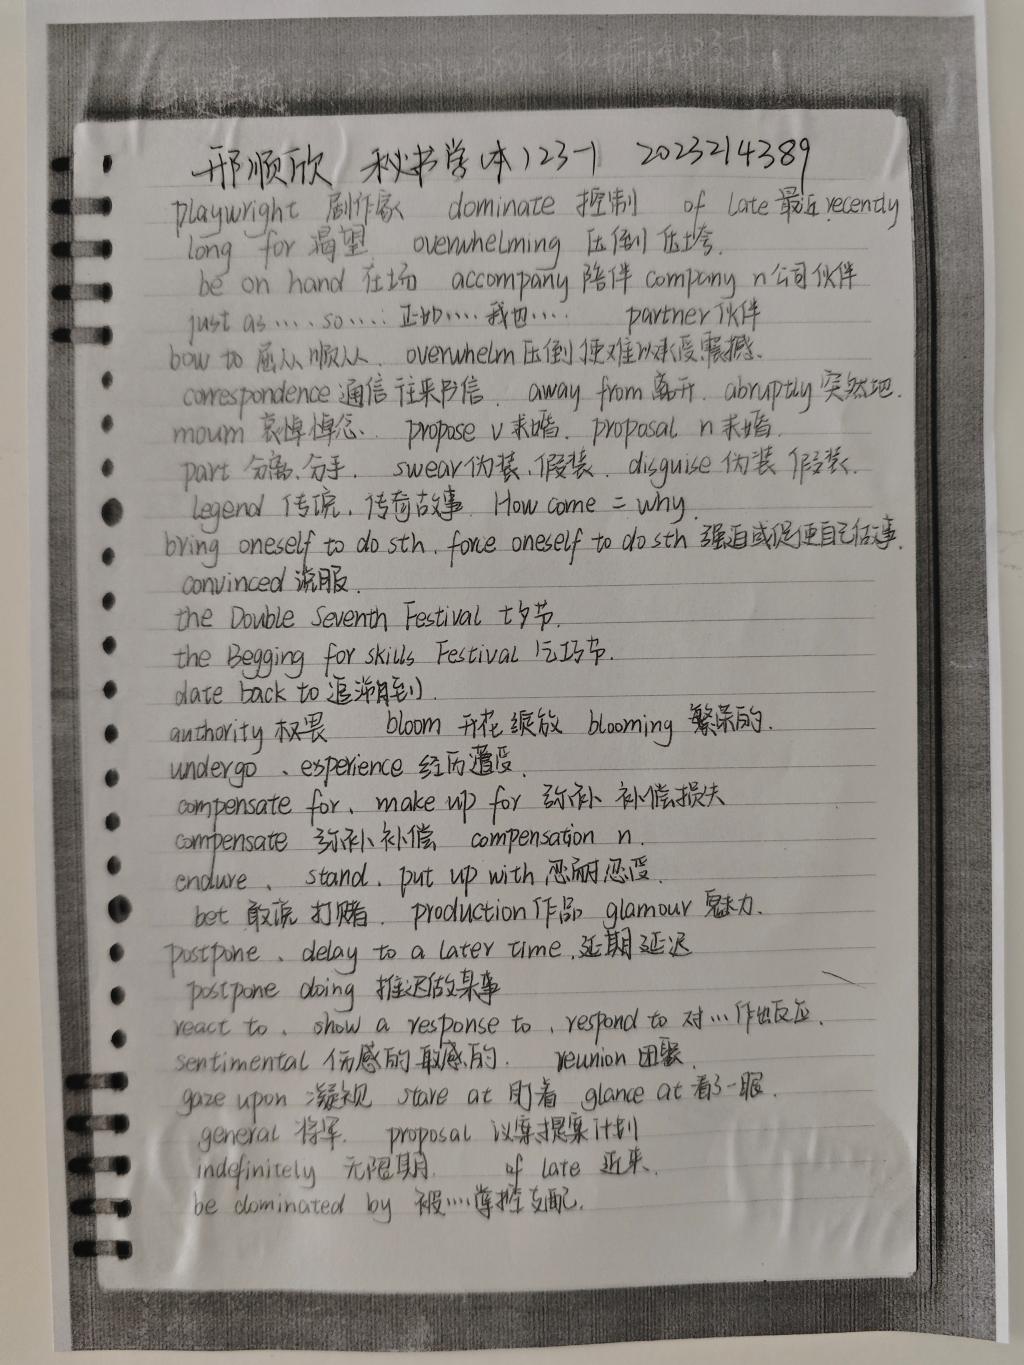 邢顺欣 秘书学(本)23-1 2023214389
playwright 剧作家 dominate 控制 of late 最近 recently
long for 渴望 overwhelming 压倒 压垮.
be on hand 在场 accompany 陪伴 company n公司 伙伴
just as .... so ....: 正如.... 我也.... partner 伙伴
bow to 屈从 顺从. overwhelm 压倒 使难以承受 震撼.
correspondence 通信 往来书信. away from 离开. abruptly 突然地.
mourn 哀悼 悼念. propose v 求婚. proposal n 求婚.
part 分离.分手. swear 伪装.假装. disguise 伪装 假装.
legend 传说.传奇故事 How come = why.
bring oneself to do sth. force oneself to do sth 强迫或促使自己做事.
convinced 说服.
the Double Seventh Festival 七夕节.
the Begging for skills Festival 乞巧节.
date back to 追溯到.
authority 权畏 bloom 开花 绽放 blooming 繁荣的.
undergo 、experience 经历 遭受.
compensate for、make up for 弥补 补偿 损失
compensate 弥补 补偿 compensation n.
endure 、 stand、put up with 忍耐 忍受.
bet 敢说 打赌. production 作品 glamour 魅力.
postpone 、delay to a later time.延期 延迟
postpone doing 推迟做某事
react to 、show a response to 、respond to 对…作出反应.
sentimental 伤感的 敏感的. reunion 团聚.
gaze upon 凝视 stare at 盯着 glance at 看了一眼.
general 将军. proposal 议案 提案 计划
indefinitely 无限期. of late 近来.
be dominated by 被……掌控 支配.